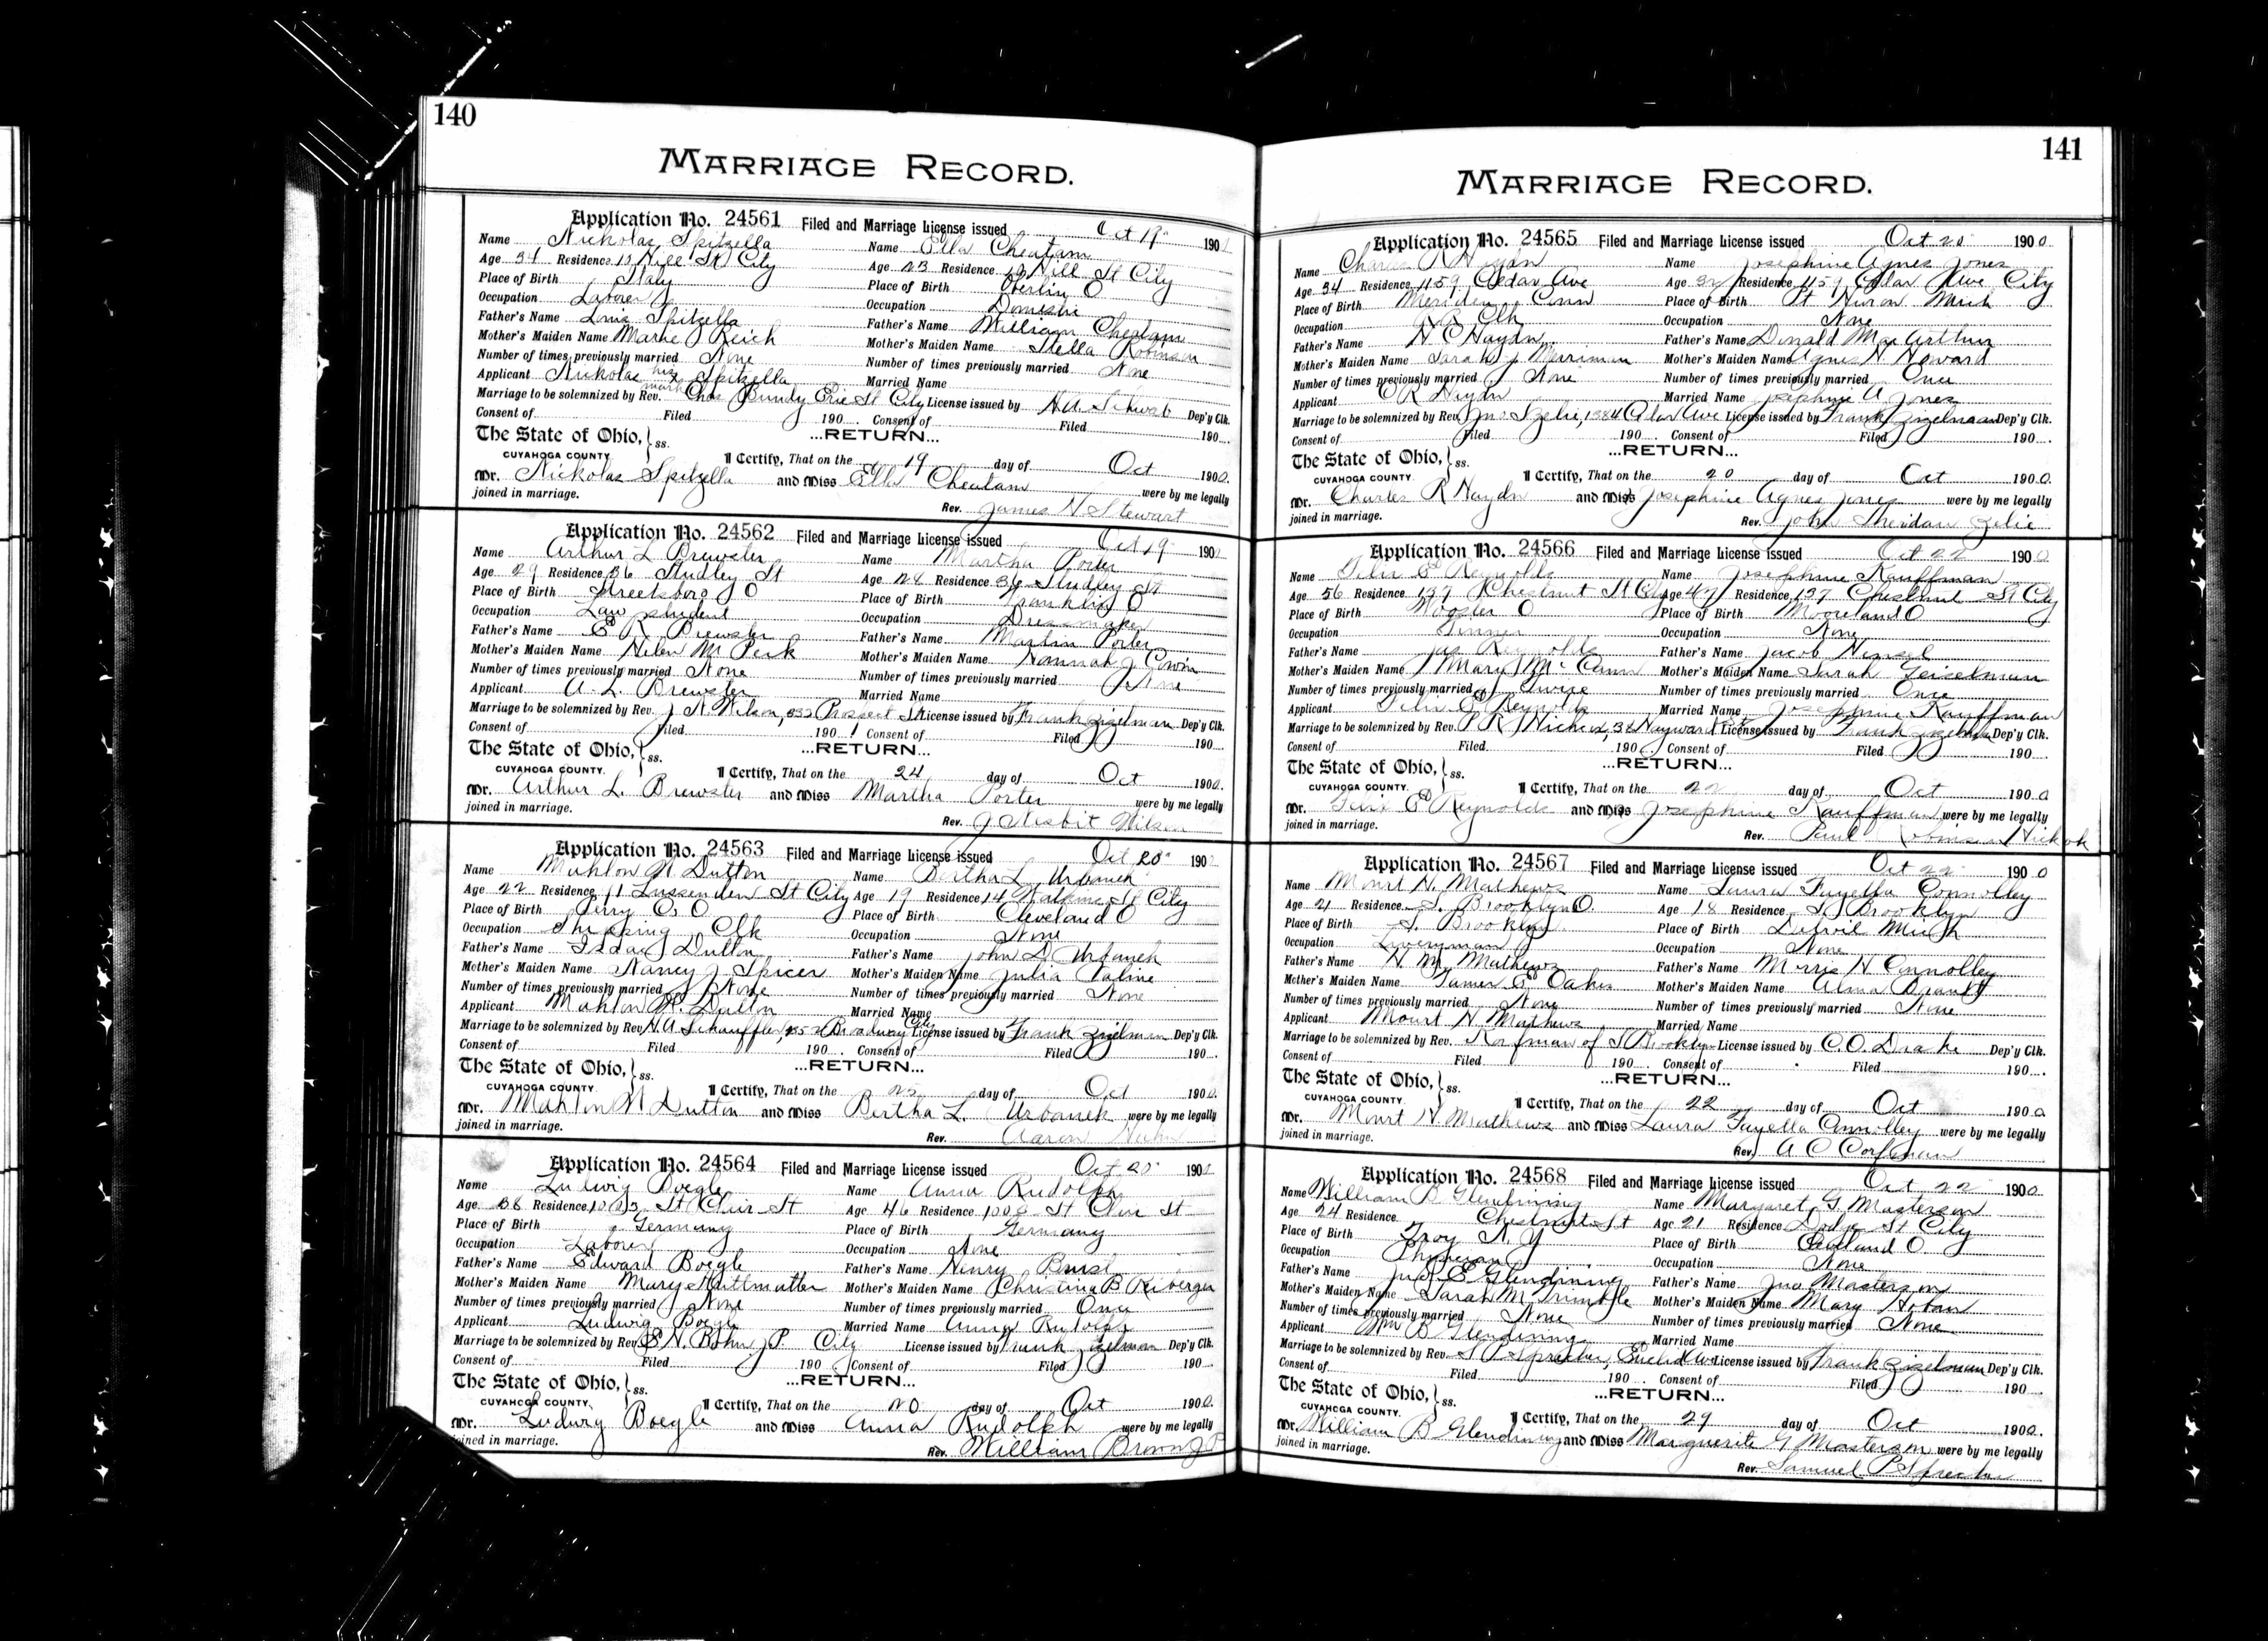 140
MARRIAGE RECORD.
Application No. 24561 Filed and Marriage License issued Oct 19 190
Name Nickolas Spitzella Name Ella Cheatam
Age 34 Residence 13 Hill St City Age 23 Residence 13 Hill St City
Place of Birth Italy Place of Birth Oberlin O
Occupation Laborer Occupation Domestic
Father's Name Louis Spitzella Father's Name William Cheatam
Mother's Maiden Name Marie Reich Mother's Maiden Name Stella Robinson
Number of times previously married None Number of times previously married None
Applicant Nickolas his x mark Spitzella Married Name
Marriage to be solemnized by Rev. Chas Bundy Erie St City License issued by H A Schwab Dep'y Clk.
Consent of Filed 190 Consent of Filed 190
The State of Ohio, ss. ...RETURN...
CUYAHOGA COUNTY. I Certify, That on the 19 day of Oct 1900.
Mr. Nickolas Spitzella and Miss Ella Cheatam were by me legally
joined in marriage. Rev. James H Stewart
Application No. 24562 Filed and Marriage License issued Oct 19 190
Name Arthur L Brewster Name Martha Porter
Age 29 Residence 36 Studley St Age 28 Residence 36 Studley St
Place of Birth Streetsboro O Place of Birth Franklin O
Occupation Law student Occupation Dressmaker
Father's Name E R Brewster Father's Name Martin Porter
Mother's Maiden Name Helen M Peck Mother's Maiden Name Hannah J
Number of times previously married None Number of times previously married None
Applicant A. L. Brewster Married Name
Marriage to be solemnized by Rev. J N. Wilson, Prospect St License issued by Frank Zizelman Dep'y Clk.
Consent of Filed 190 Consent of Filed 190
The State of Ohio, ss. ...RETURN...
CUYAHOGA COUNTY. I Certify, That on the 24 day of Oct 1900.
Mr. Arthur L. Brewster and Miss Martha Porter were by me legally
joined in marriage. Rev. J Nesbit Wilson
Application No. 24563 Filed and Marriage License issued Oct 20 190
Name Mahlon N Dutton Name Bertha L Urbanek
Age 22 Residence 11 Lussenden St City Age 19 Residence 14 St City
Place of Birth Perry Co O Place of Birth Cleveland O
Occupation Shipping Clk Occupation None
Father's Name Isaac Dutton Father's Name John D Urbanek
Mother's Maiden Name Nancy J Spicer Mother's Maiden Name Julia
Number of times previously married None Number of times previously married None
Applicant Mahlon N. Dutton Married Name
Marriage to be solemnized by Rev. H A Schauffler, Broadway City License issued by Frank Zizelman Dep'y Clk.
Consent of Filed 190 Consent of Filed 190
The State of Ohio, ss. ...RETURN...
CUYAHOGA COUNTY. I Certify, That on the 25 day of Oct 1900.
Mr. Mahlon N Dutton and Miss Bertha L. Urbanek were by me legally
joined in marriage. Rev. Aaron
Application No. 24564 Filed and Marriage License issued Oct 20 190
Name Ludwig Boegle Name Anna Rudolph
Age 38 Residence 1003 St Clair St Age 46 Residence 1003 St Clair St
Place of Birth Germany Place of Birth Germany
Occupation Laborer Occupation None
Father's Name Edward Boegle Father's Name Henry
Mother's Maiden Name Mary Mother's Maiden Name Christina B Reiberger
Number of times previously married None Number of times previously married Once
Applicant Ludwig Boegle Married Name Anna Rudolph
Marriage to be solemnized by Rev. E H. Bohm J P City License issued by Frank Zizelman Dep'y Clk.
Consent of Filed 190 Consent of Filed 190
The State of Ohio, ss. ...RETURN...
CUYAHOGA COUNTY. I Certify, That on the 20 day of Oct 1900.
Mr. Ludwig Boegle and Miss Anna Rudolph were by me legally
joined in marriage. Rev. William Brown J P
141
MARRIAGE RECORD.
Application No. 24565 Filed and Marriage License issued Oct 20 1900.
Name Charles R Haydn Name Josephine Agnes Jones
Age 34 Residence 1159 Cedar Ave Age 32 Residence 1159 Cedar Ave City
Place of Birth Meriden Conn Place of Birth Pt Huron Mich
Occupation R R Clk Occupation None
Father's Name H C Haydn Father's Name Donald MacArthur
Mother's Maiden Name Sarah J Merriman Mother's Maiden Name Agnes H Howard
Number of times previously married None Number of times previously married Once
Applicant C R Haydn Married Name Josephine A Jones
Marriage to be solemnized by Rev. Jno S Zelie, 1384 Cedar Ave License issued by Frank Zizelman Dep'y Clk.
Consent of Filed 190 Consent of Filed 190
The State of Ohio, ss. ...RETURN...
CUYAHOGA COUNTY. I Certify, That on the 20 day of Oct 1900.
Mr. Charles R Haydn and Miss Josephine Agnes Jones were by me legally
joined in marriage. Rev. John Sheridan Zelie
Application No. 24566 Filed and Marriage License issued Oct 22 1900
Name Reynolds Name Josephine Kauffman
Age 56 Residence 137 Chestnut St City Age 47 Residence 137 Chestnut St City
Place of Birth Wooster O Place of Birth Mooreland O
Occupation Tinner Occupation None
Father's Name Jas Reynolds Father's Name Jacob Hensel
Mother's Maiden Name Mary McCann Mother's Maiden Name Sarah Geiselman
Number of times previously married Twice Number of times previously married Once
Applicant Reynolds Married Name Josephine Kauffman
Marriage to be solemnized by Rev. P R Hickok, 38 Hayward St License issued by Frank Zizelman Dep'y Clk.
Consent of Filed 190 Consent of Filed 190
The State of Ohio, ss. ...RETURN...
CUYAHOGA COUNTY. I Certify, That on the 22 day of Oct 1900
Mr. Reynolds and Miss Josephine Kauffman were by me legally
joined in marriage. Rev. Paul Robinson Hickok
Application No. 24567 Filed and Marriage License issued Oct 22 1900
Name Mount H. Mathews Name Laura Fayella Connolley
Age 21 Residence S. Brooklyn O. Age 18 Residence S. Brooklyn
Place of Birth S. Brooklyn Place of Birth Detroit Mich
Occupation Liveryman Occupation None
Father's Name H. M. Mathews Father's Name Morris H Connolley
Mother's Maiden Name Tamer E Oakes Mother's Maiden Name Alma
Number of times previously married None Number of times previously married None
Applicant Mount H Mathews Married Name
Marriage to be solemnized by Rev. Korfman of S Brooklyn License issued by C. O. Drake Dep'y Clk.
Consent of Filed 190 Consent of Filed 190
The State of Ohio, ss. ...RETURN...
CUYAHOGA COUNTY. I Certify, That on the 22 day of Oct 1900
Mr. Mount H Mathews and Miss Laura Fayella Connolley were by me legally
joined in marriage. Rev. A C Corfman
Application No. 24568 Filed and Marriage License issued Oct 22 1900
Name William B Glendinning Name Margaret G Masterson
Age 24 Residence Chestnut St Age 21 Residence Dodge St City
Place of Birth Troy N. Y Place of Birth Cleveland O
Occupation Physician Occupation None
Father's Name Glendinning Father's Name Jno Masterson
Mother's Maiden Name Sarah M Trimble Mother's Maiden Name Mary Hoban
Number of times previously married None Number of times previously married None
Applicant Wm B Glendinning Married Name
Marriage to be solemnized by Rev. S P Sprecher, Euclid Ave License issued by Frank Zizelman Dep'y Clk.
Consent of Filed 190 Consent of Filed 190
The State of Ohio, ss. ...RETURN...
CUYAHOGA COUNTY. I Certify, That on the 29 day of Oct 1900.
Mr. William B Glendinning and Miss Marguerite G Masterson were by me legally
joined in marriage. Rev. Samuel P Sprecher